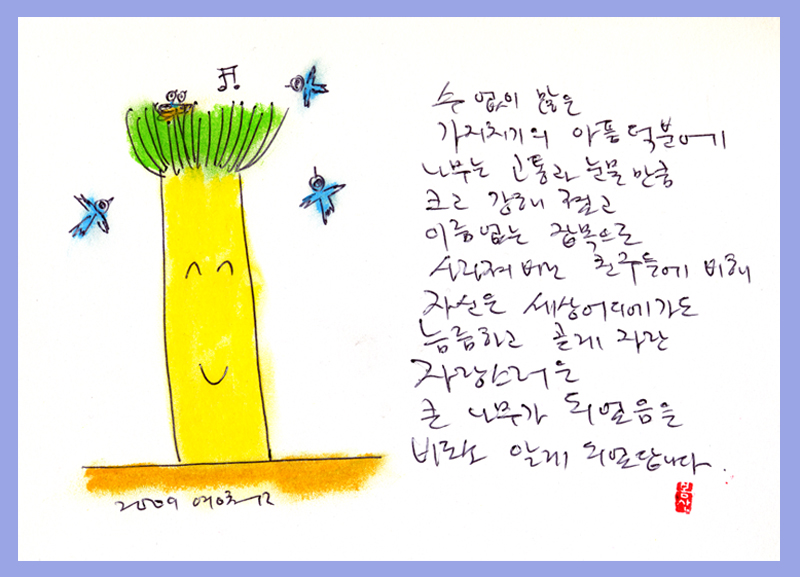 수 없이 많은
가지치기의 아픔 덕분에
나무는 고통과 눈물 만큼
크고 강해 졌고
이름없는 잡목으로
사라져 버린 친구들에 비해
자신은 세상어디에가도
늠름하고 곧게 자란
자랑스러운
큰 나무가 되었음을
비로소 알게 되었답니다.
2009